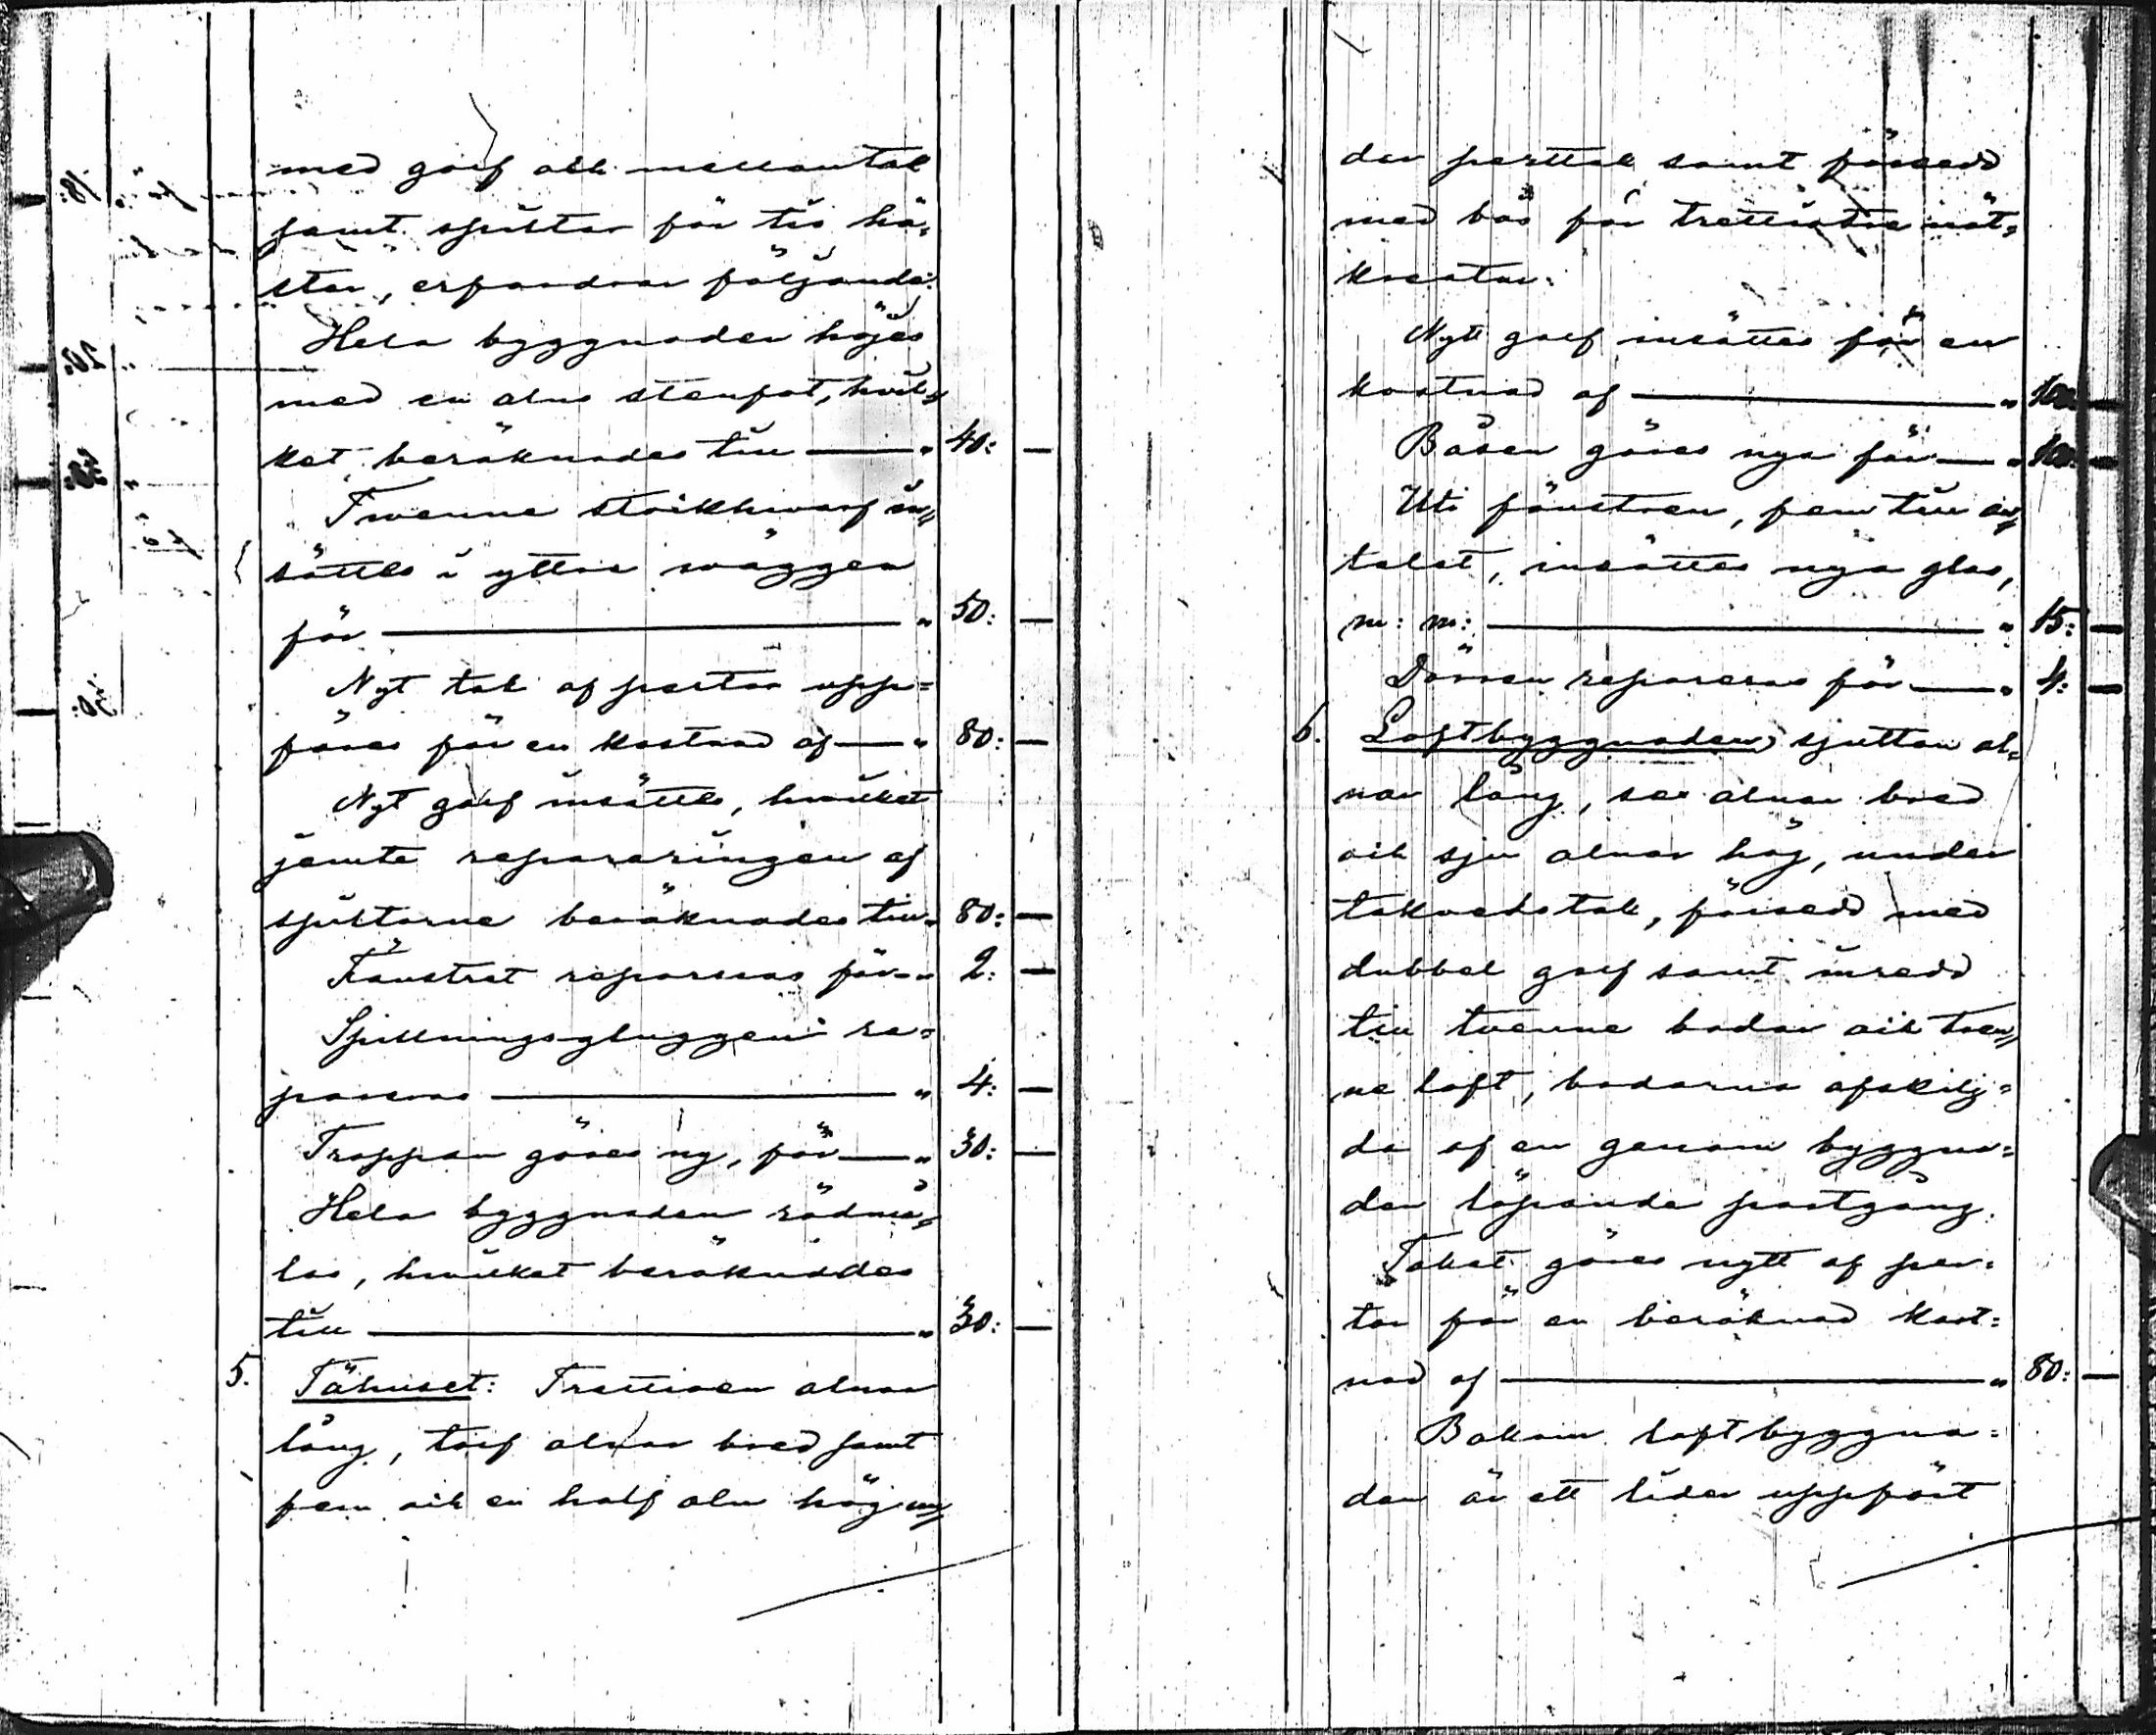 med golf och mellantak
samt spiltor för tio hä=
star, erfordrar följande:
Hela byggnaden höjes
med en alns stenfot, hvil=
ket beräknades till — " 40: —
Twenne stockhwarf in=
sättes i yttre wäggen
för — " 50: —
Nytt tak af pertor upp=
föres för en kostnad af — " 80: —
Nytt golf insättes, hvilket
jemte repareringen af
spiltorne beräknades till " 80: —
Fönstret repareras för — " 2: —
Spillningsgluggen re=
pareras — " 4: —
Trappan göres ny, för — " 30: —
Hela byggnaden rödmå=
las, hvilket beräknades
till — " 30: —
5. Fähuset: Trettioen alnar
lång, tolf alnar bred samt
fem och en half aln hög un=
der perttak samt försedd
med bås för trettiotre nöt=
kreatur.
Nytt golf insättes för en
kostnad af — " 100: —
Båsen göres nya för — " 100: —
Uti fönstren, fem till an=
talet, insättes nya glas,
m: m: — " 15: —
Dörren repareras för — " 4: —
6. Loftbyggnaden, sjutton al=
nar lång, sex alnar bred
och sju alnar hög, under
takvedstak, försedd med
dubbel golf samt inredd
till tvenne bodar och tven=
ne loft, bodarna afskilj=
da af en genom byggna=
den löpande portgång.
Taket göres nytt af per=
tor för en beräknad kost=
nad af — " 80: —
Bakom loftbyggna=
den är ett lider uppfört